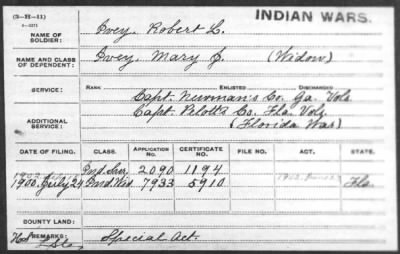 (3-H-11)
INDIAN WARS.
NAME OF SOLDIER: Ivey, Robert L.
NAME AND CLASS OF DEPENDENT: Ivey, Mary J. (Widow)
SERVICE: RANK ENLISTED DISCHARGED
Capt. Newman's Co. Ga. Vols.
ADDITIONAL SERVICE: Capt. Pelott's Co. Fla. Vols.
(Florida War)
DATE OF FILING. CLASS. APPLICATION NO. CERTIFICATE NO. FILE NO. ACT. STATE.
Ind. Sur. 2090 1194
1900. July 24 Ind. Wid. 7933 5910 Fla.
BOUNTY LAND:
REMARKS: Special Act.